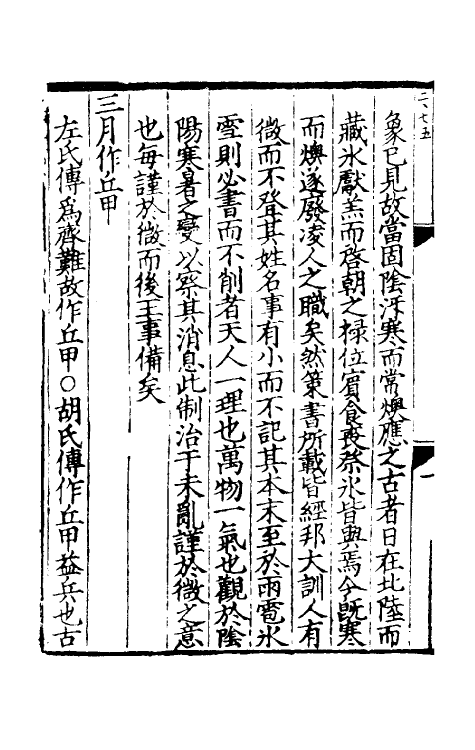 二七五
象已見故當固陰沍寒而常燠應之古者日在北陸而
藏氷獻羔而啓朝之祿位賔食喪祭氷皆與焉今旣寒
而燠遂廢凌人之職矣然策書所載皆經邦大訓人有
微而不登其姓名事有小而不記其本末至於雨雹氷
雪則必書而不削者天人一理也萬物一氣也觀於陰
陽寒暑之變以察其消息此制治于未亂謹於微之意
也每謹於微而後王事備矣
三月作丘甲
左氏傳爲齊難故作丘甲○胡氏傳作丘甲益兵也古